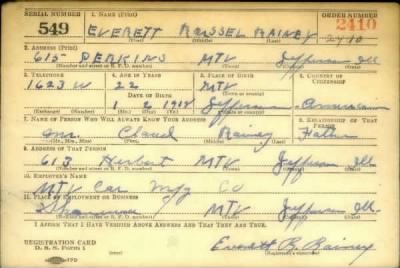 SERIAL NUMBER 1. NAME (Print) ORDER NUMBER
549 EVERETT RUSSEL RAINEY 2410
(First) (Middle) (Last)
2. ADDRESS (Print)
615 PERKINS MTV Jefferson Ill
(Number and street or R. F. D. number) (Town) (County) (State)
3. TELEPHONE 4. AGE IN YEARS 5. PLACE OF BIRTH 6. COUNTRY OF CITIZENSHIP
1623 W 22 MTV
DATE OF BIRTH (Town or county)
1 2 Jefferson American
(Exchange) (Number) (Mo.) (Day) (Yr.) (State or country)
7. NAME OF PERSON WHO WILL ALWAYS KNOW YOUR ADDRESS 8. RELATIONSHIP OF THAT PERSON
Mr. Claud Rainey Father
(Mr., Mrs., Miss) (First) (Middle) (Last)
9. ADDRESS OF THAT PERSON
613 Herbert MTV Jefferson Ill.
(Number and street or R. F. D. number) (Town) (County) (State)
10. EMPLOYER'S NAME
MTV Car Mfg Co
11. PLACE OF EMPLOYMENT OR BUSINESS
MTV Jefferson Ill.
(Number and street or R. F. D. number) (Town) (County) (State)
I AFFIRM THAT I HAVE VERIFIED ABOVE ANSWERS AND THAT THEY ARE TRUE.
REGISTRATION CARD
D. S. S. Form 1
Everett R. Rainey
(Registrant's signature)